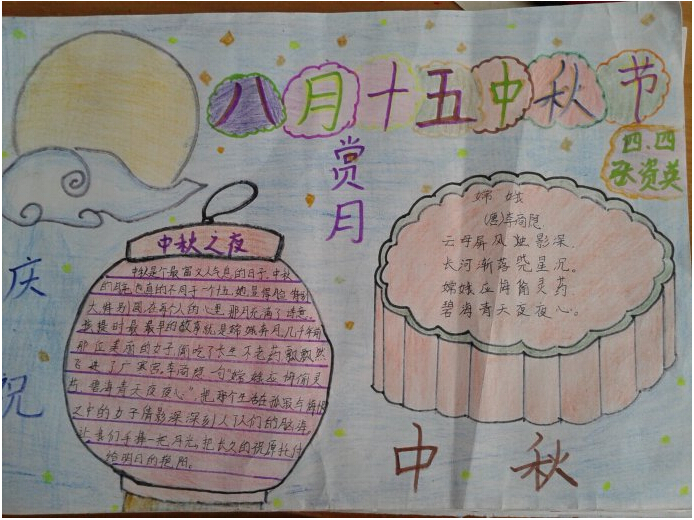 八月十五中秋节
四.四
张资英
赏月
庆祝
中秋之夜
中秋是个最富又人气息的日子,中秋
的月
大特别圆,在每个人的心里,那月充满了诗意。
最早的故事就是嫦娥奔月,几千年前
那位美丽的女子偷吃了长生不老药飘飘然
飞进了广寒宫,李商隐一句"嫦娥应悔偷灵
药,碧海青天夜夜心。"把那个生活在孤寂与
之中的女子倩影深深刻入人们的脑海
让我们手捧一把月光,把长久的祝愿托付
给明日的
嫦娥
(唐)李商隐
云母屏风烛影深.
长河渐落晓星沉。
嫦娥应悔偷灵药
碧海青天夜夜心。
中秋